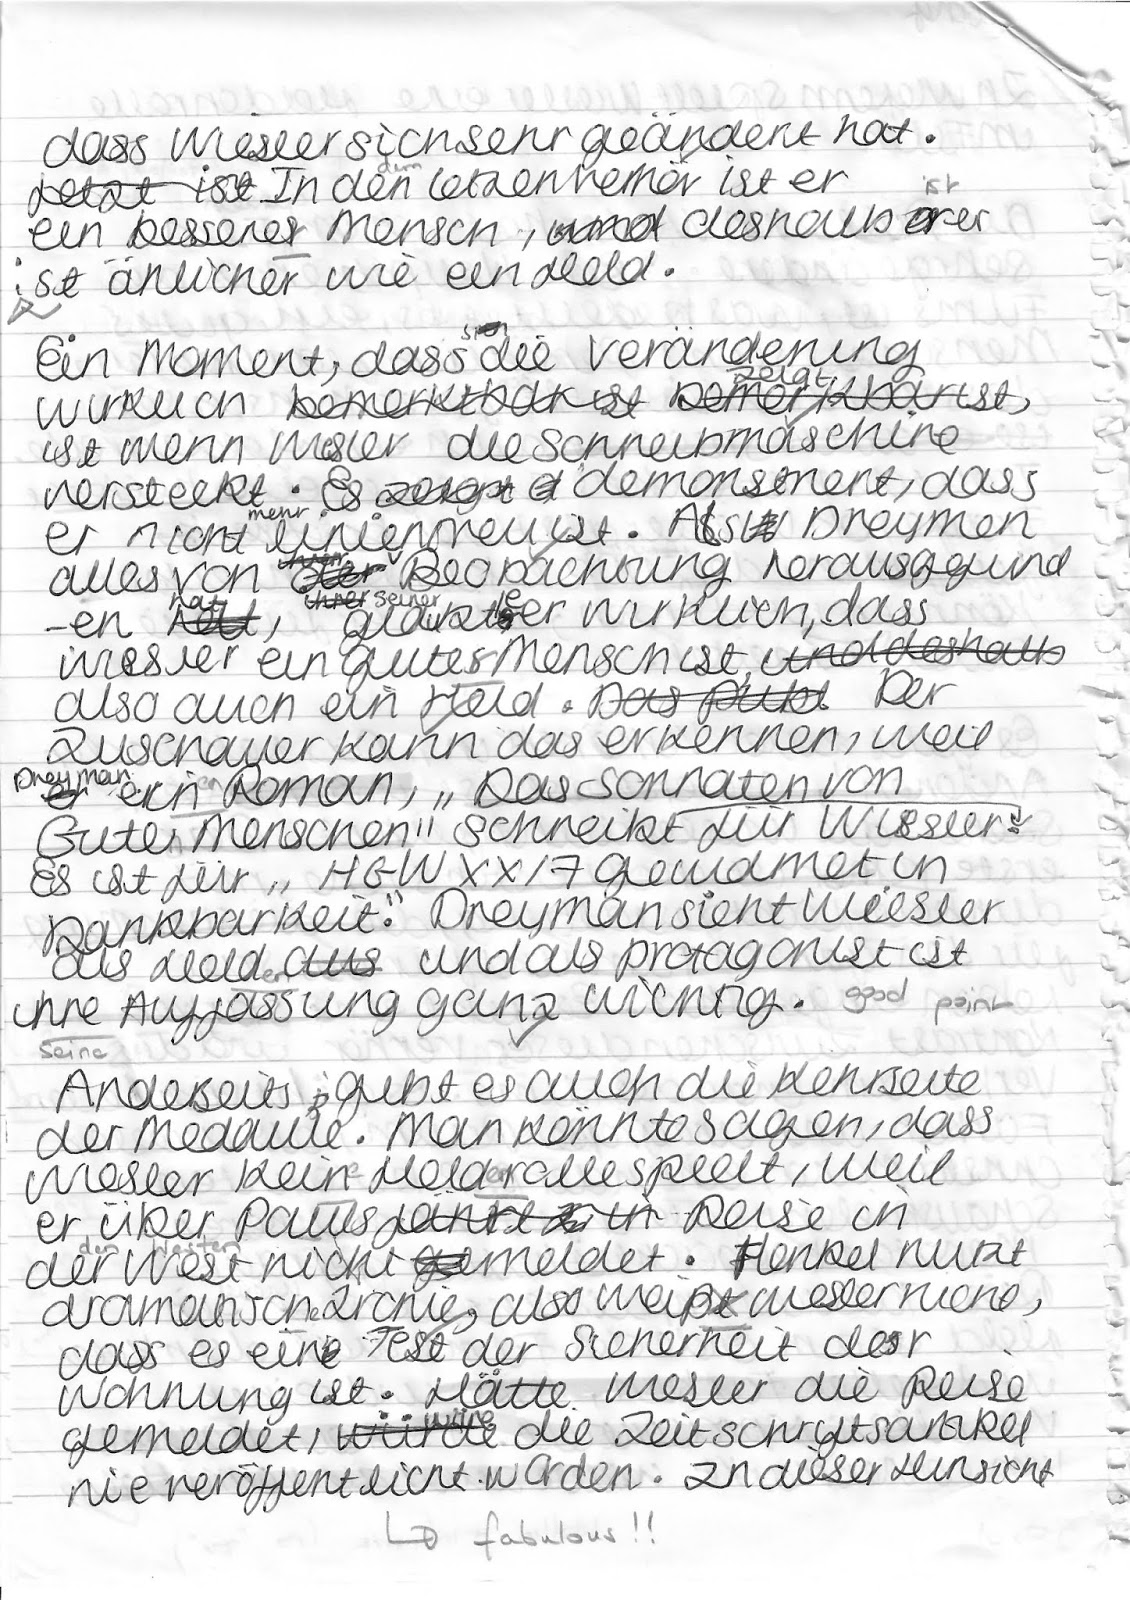 dass Wiesler sich sehr geändert hat.
Letzt ist In den dem letzen Verhör ist er
ein besserer Mensch, und deshalb er er ist
ist änlicher wie ein Held.
Ein Moment, dass sich die Veränderung
wirklich bemerktbar ist bemerkbar ist, zeigt
ist wenn Wisler die Schreibmaschine
versteckt. Es zeigt d demonstriert, dass
er nicht mehr linientreu ist. Als Dreyman
alles von der ihrer Beobachtung herausgefund
-en hat, ihrer seiner glaubte er wirklich, dass
Wiesler ein guter Mensch ist, und deshalb
also auch ein Held. Das publ Der
Zuschauer kann das erkennen, weil
Dreyman er ein en Roman, „Das Sonnaten von
Guten Menschen" schreibt für Wiesler.
Es ist für „HGW XX/7 gewidmet in
Dankbarkeit." Dreyman sieht Wiesler
als Helden aus und als protagonist ist
ihre Auffassung ganz wichtig. good point
seine
Anderseits, gibt es auch die Kehrseite
der Medaille. Man könnte sagen, dass
Wiesler keine Heldenrolle spielt, weil
er über Pauls fährt in Reise in
der West nicht gemeldet. Henkel nutzt
den Westen
dramatische Ironie, also weißt Wiesler nicht,
dass es eine Test der Sicherheit der
Wohnung ist. Hätte Wiesler die Reise
gemeldet, würde wäre die Zeitschriftsartikel
nie veröffentlicht worden. In dieser Hinsicht
fabulous!!